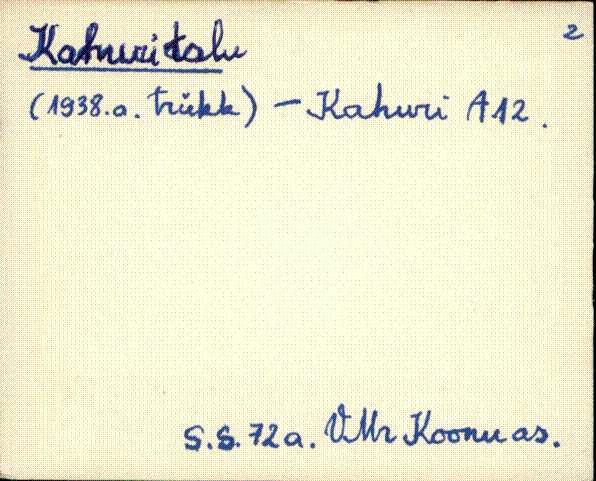 2
Kahuri talu
(1938.a. trükk) – Kahuri A12.
S.S. 72a. VMr Koonu as.